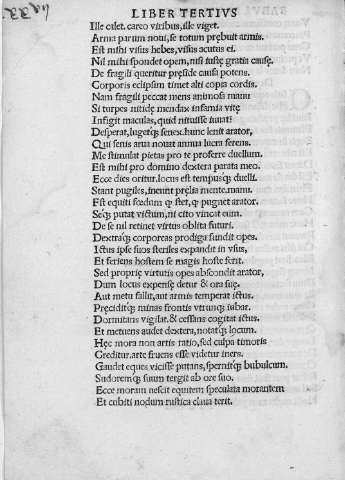 LIBER TERTIVS
Ille calet. careo viribus, ille viget.
Arma parum noui, se totum prębuit armis.
Est mihi visus hebes, visus acutus ei.
Nil mihi spondet opem, nisi iustę gratia causę.
De fragili queritur pręside causa potens.
Corporis eclipsim timet alti copia cordis.
Nam fragili peccat mens animosa manu
Si turpes nitidę mendax infamia vitę
Infigit maculas, quid nituisse iuuat?
Desperat, lugetq; senex. hunc lenit arator,
Qui senis arua nouat annua lucra ferens.
Me stimulat pietas pro te proferre duellum.
Est mihi pro domino dextera parata meo.
Ecce dies oritur. locus est tempusq; duelli.
Stant pugiles, ineunt pręlia mente, manu.
Est equiti fœdum q̃ stet, q̃ pugnet arator.
Seq; putat victum, ni cito vincat eum.
De se nil retinet virtus oblita futuri.
Dextraq; corporeas prodiga fundit opes.
Ictus ipse suos steriles expandit in vsus,
Et feriens hostem se magis hoste ferit.
Sed proprię virtutis opes abscondit arator,
Dum locus expensę detur & ora suę.
Aut metu fallit, aut armis temperat ictus.
Pręciditq; minas frontis vtrunq; iubar.
Dormitans vigilat. & cessans cogitat ictus.
Et metuens audet dextera, notatq; locum.
Hęc mora non artis ratio, sed culpa timoris
Creditur. arte fruens esse videtur iners.
Gaudet eques vicisse putans, spernitq; bubulcum.
Sudoremq; suum tergit ab ore suo.
Ecce moram nescit equitem speculata morantem
Et cubiti nodum rustica claua terit.